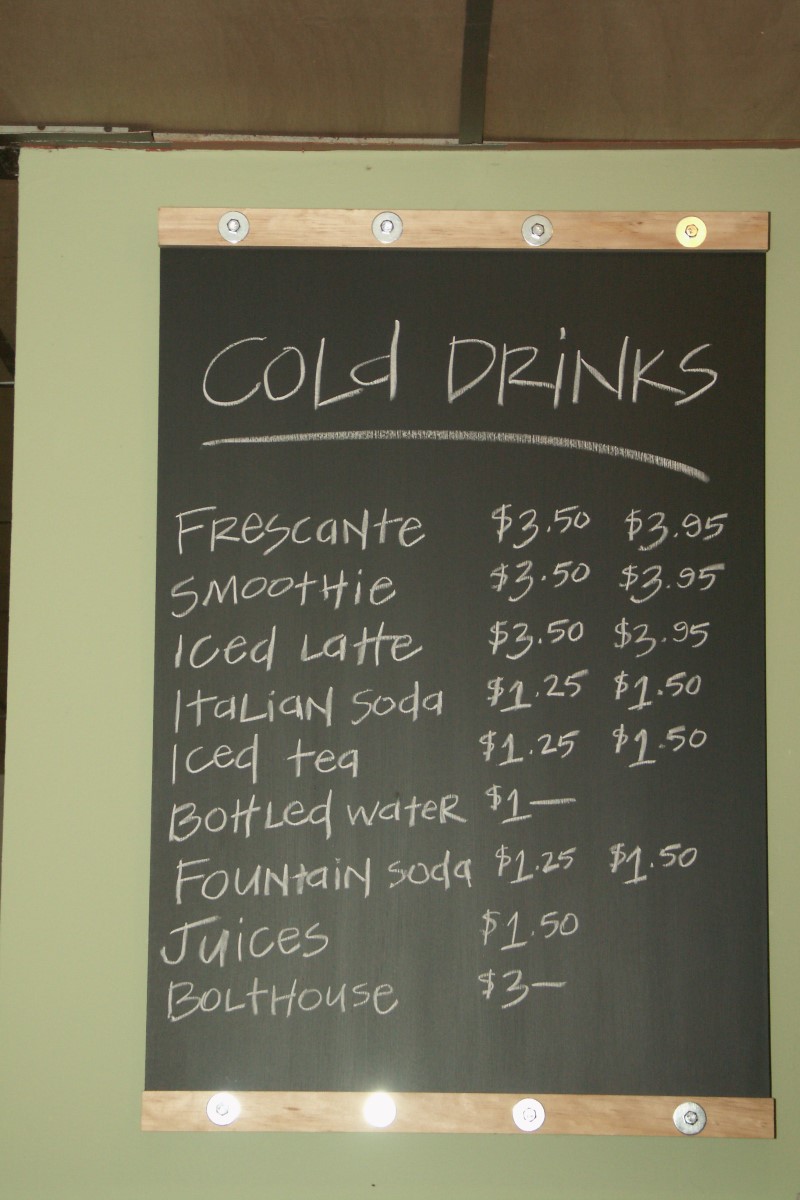 Cold Drinks
Frescante $3.50 $3.95
Smoothie $3.50 $3.95
Iced Latte $3.50 $3.95
Italian Soda $1.25 $1.50
Iced tea $1.25 $1.50
Bottled water $1—
Fountain soda $1.25 $1.50
Juices $1.50
Bolthouse $3—